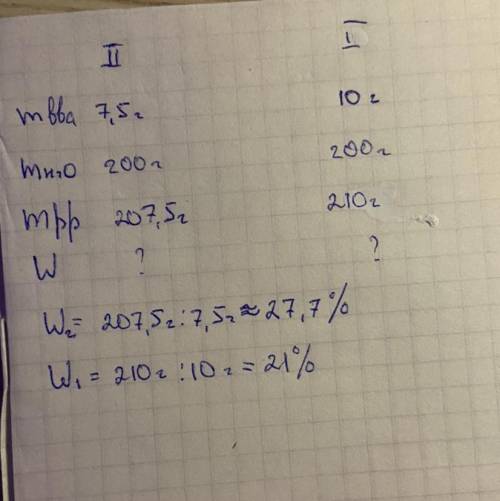 II I
mвва 7,5г 10г
mн₂о 200г 200г
mрр 207,5г 210г
W ? ?
W₂= 207,5г:7,5г≈27,7%
W₁ = 210г:10г = 21%